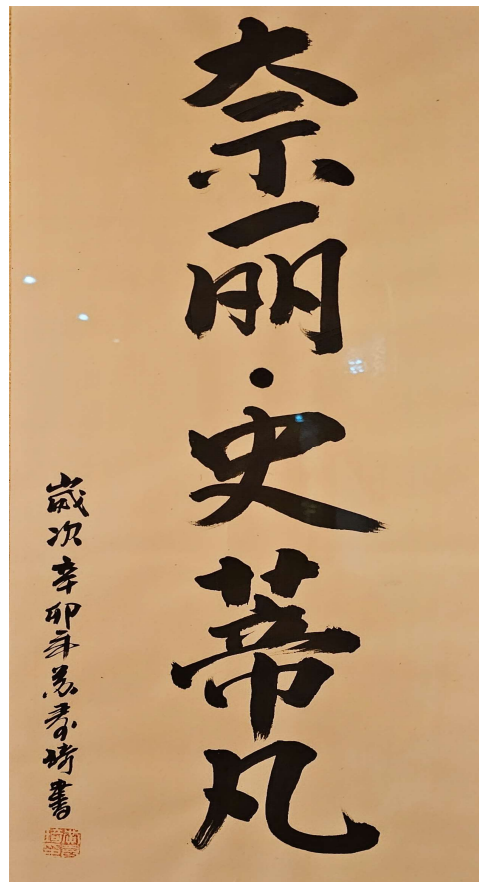 奈丽·史蒂凡
歲次辛卯年
書